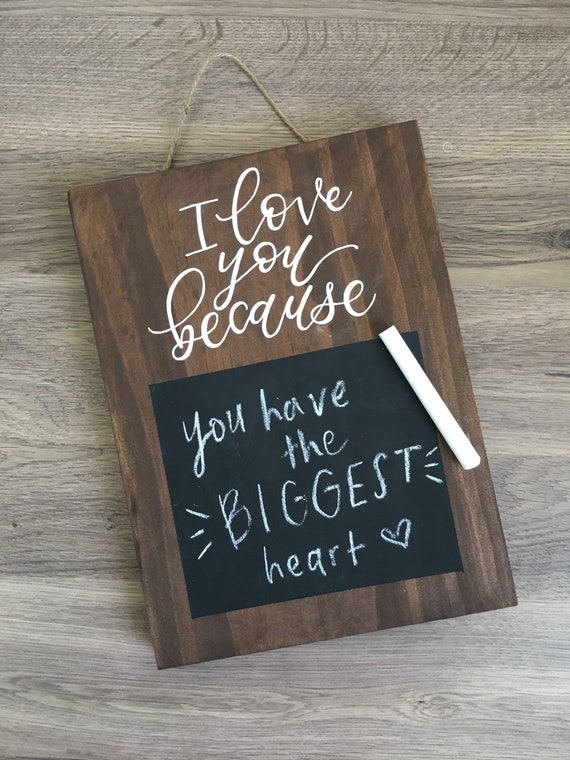 I love
you
because
you have
the
BIGGEST
heart ♡